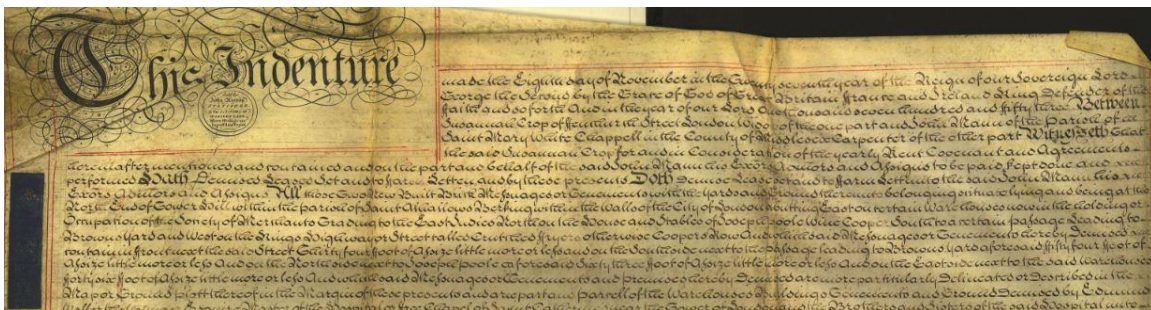 This Indenture
made the Eighth day of November in the Twenty seventh year of the Reign of our Sovereign Lord
George the Second by the Grace of God of Great Britain France and Ireland King Defender of the
ffaith and so forth And in the year of our Lord One thousand seven hundred and fifty three Between
Susannah Crop of ffenchurch Street London Widow of the one part and John Mann of the Parish of
Saint Mary White Chappell in the County of Middlesex Carpenter of the other part Witnesseth that
the said Susannah Crop for and in Consideration of the yearly Rent Covenants and Agreements
hereinafter mentioned and contained and on the part and behalf of the said John Mann his Executors and Assigns to be paid kept done and
performed Hath Demised Leased Set and to Farm Letten and by these presents Doth Demise Lease Set and to Farm Lett unto the said John Mann his
Assigns All those Two New Built Brick Messuages or Tenements with the Yards and thereunto belonging situate lying and being at the
North End of Tower Hill within the parish of Saint Allhallows Barking within the Walls of the City of London abutting East on certain Warehouses now in the holding or
Occupation of the Society of Merchants Trading to the East Indies North on the House and Stables of Joseph poole Wine Cooper South to a certain passage Leading to
Browns Yard and West on the Kings Highway or Street called Crutched ffryers otherwise Coopers Row And which said Messuages or Tenements hereby Demised
contain in ffront next the said Street Thirty four ffoot of Assize little more or less and on the South side next to the passage leading to Browns Yard aforesaid fifty four ffoot of
Assize little more or less And on the North side next to Joseph poole aforesaid Sixty three ffoot of Assize little more or less And on the East side next to the said Warehouses
fforty six ffoot of Assize little more or less And which said Messuages or Tenements and premises hereby Demised are more particularly Delineated or Described in the
Map or Ground plott thereof in the Margin of these presents and are part and parcell of the Warehouses Buildings Tenements and Ground Demised by Edmund
Master of the Hospital or ffree Chapel of Saint Katherine near the Tower of London and the Brothers and Sisters of the said Hospital unto